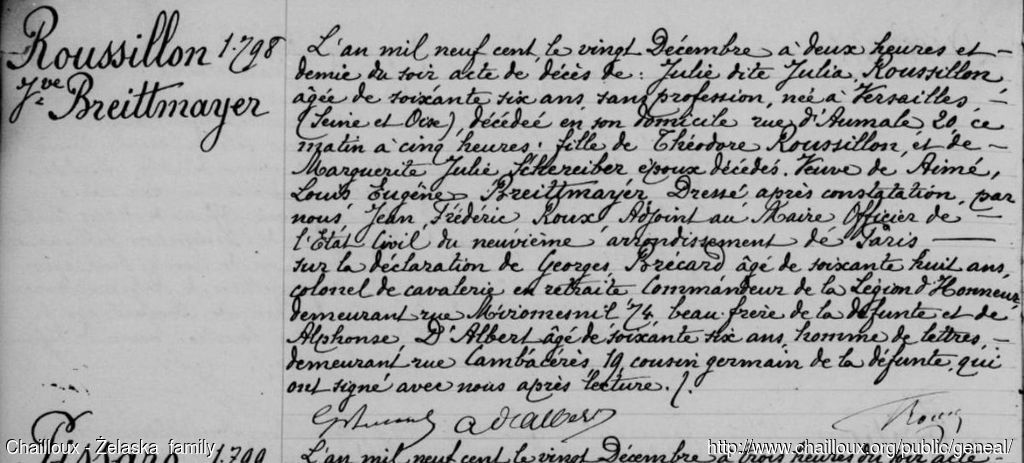 Roussillon 1.798
Vve Breittmayer
L'an mil neuf cent, le vingt Décembre à deux heures et –
demie du soir acte de décès de : Julie dite Julia Roussillon
âgée de soixante six ans, sans profession, née à Versailles –
(Seine et Oise), décédée en son domicile rue d'Aumale 20 ce
matin à cinq heures ; fille de Théodore Roussillon, et de –
Marguerite Julie Schereiber époux décédés. Veuve de Aimé,
Louis Eugène Breittmayer. Dressé après constatation, par
nous, Jean, Frédéric Roux Adjoint au Maire Officier de –
l'Etat Civil du neuvième arrondissement de Paris ——
sur la déclaration de Georges Brécard âgé de soixante huit ans,
colonel de cavalerie en retraite Commandeur de la Légion d'Honneur
demeurant rue Miromesnil 74 beau-frère de la défunte et de
Alphonse D'Albert âgé de soixante six ans, homme de lettres, –
demeurant rue Cambacérès, 19, cousin germain de la défunte, qui
ont signé avec nous après lecture. /.
A d'Albert
Roux
Pissaro 1.799
L'an mil neuf cent le vingt Décembre à trois heures du soir acte –
Chailloux - Żelaska family
http://www.chailloux.org/public/geneal/